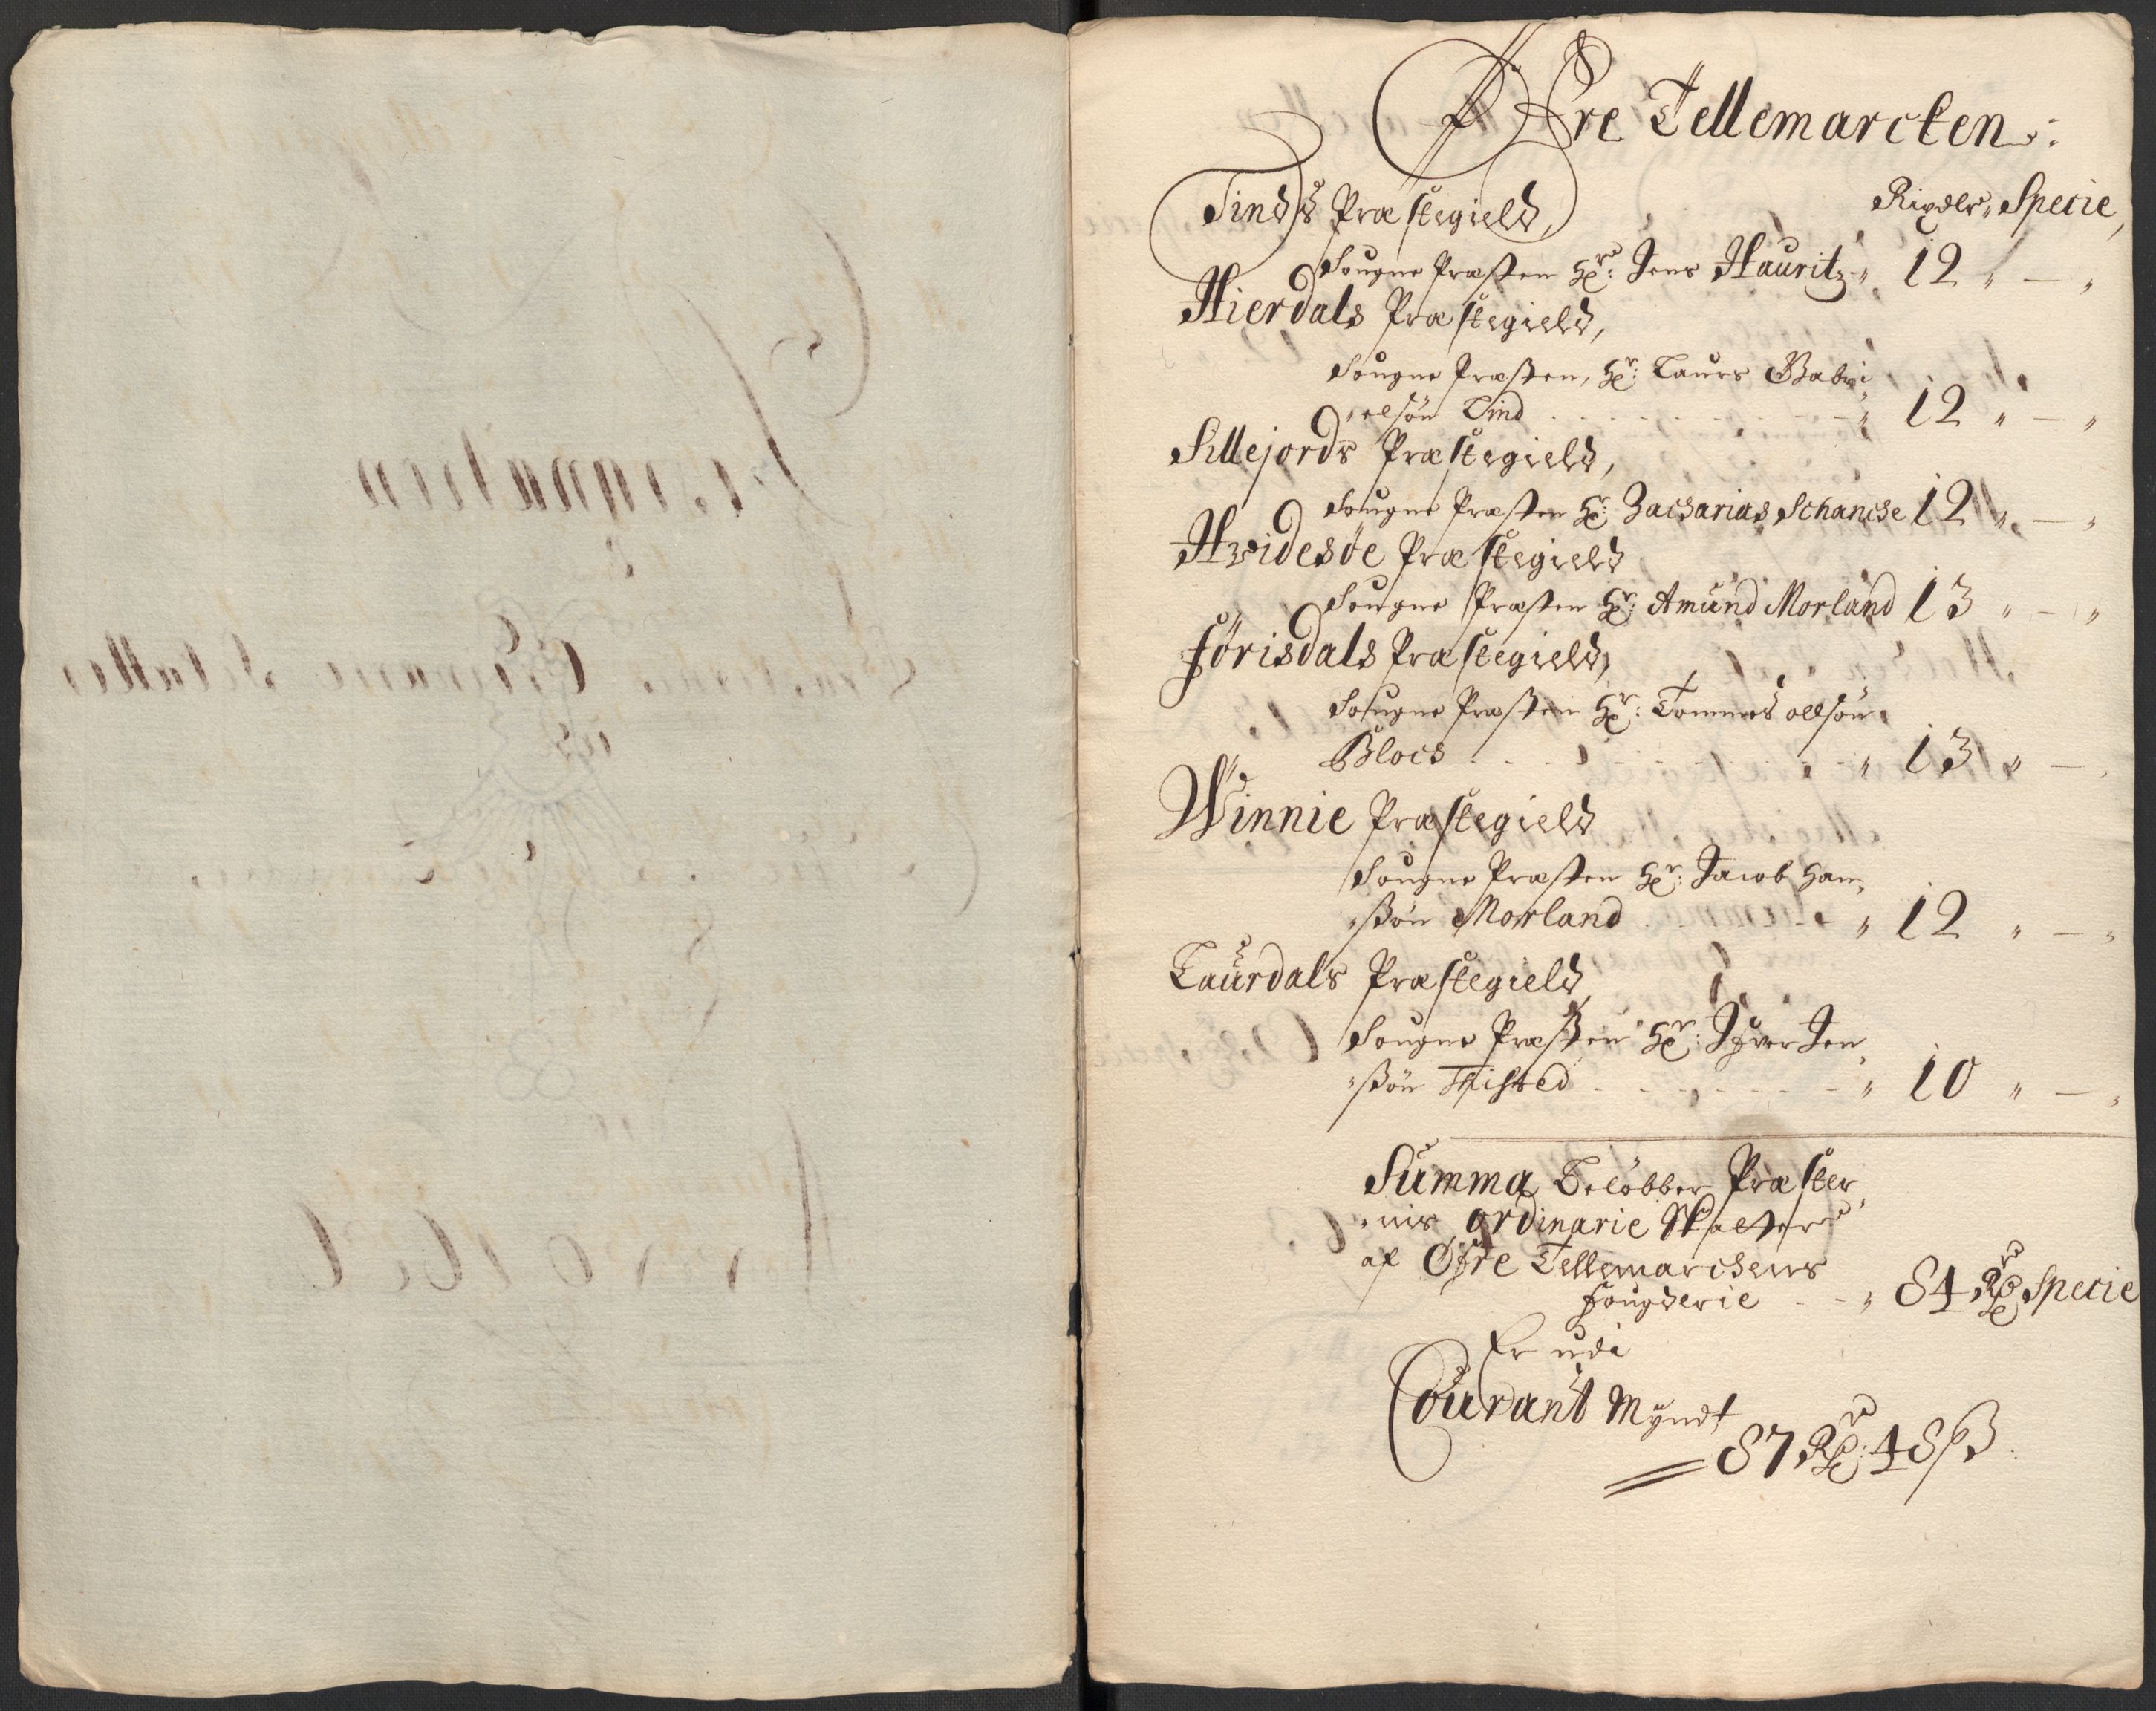 Øfre Tellemarcken
Rixdlr. Specie,
Tinds Præstegield,
Sougne Præsten Hr: Jens Hauritz 12 " — "
Hierdals Præstegield,
Sougne Præsten, Hr: Laurs Gabri
elsøn Tind " 12 " — "
Sillejords Præstegield,
Sougne Præsten Hr: Zacharias Schancke 12 " — "
Hvidesøe Præstegield
Sougne Præsten Hr: Amund Morland 13 " — "
Førisdals Præstegield,
Sougne Præsten Hr: Tommes ollsøn
Block " 13 " —
Winnie Præstegield
Sougne Præsten Hr: Jacob Han
ssøn Morland " 12 " — "
Laurdals Præstegield
Sougne Præsten Hr: Ifver Jen
ssøn Thisted " 10 " — "
Summa Beløbber Præster
nis ordinarie Skatter
af Øfre Tellemarckens
Fougderie " 84 Rdr Specie
Er udi
Courant Myndt
87 Rdr: 48 ß